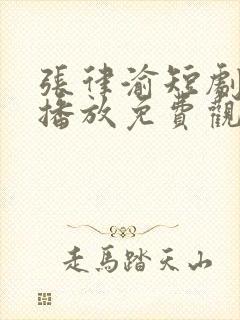 張律渝短劇
播放免費觀
走馬踏天山